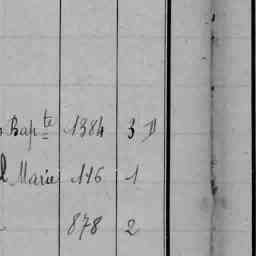 Bapte 1384 3 D
Marie 116 1
878 2